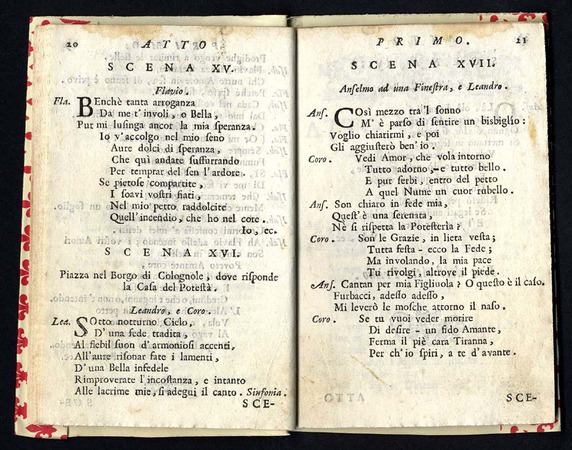 20 ATTO
SCENA XV.
Flavio.
Fla. BEnchè tanta arroganza
Da me t'involi, o Bella,
Put mi lusinga ancor la mia speranza.
Io v'accolgo nel mio seno
Aure dolci di speranza,
Che quì andate sussurrando
Per temprar del sen l'ardore.
Se pietose compartite,
I soavi vostri fiati,
Nel mio petto raddolcite
Quell'incendio, che ho nel core.
Io, ec.
SCENA XVI.
Piazza nel Borgo di Colognole, dove risponde
la Casa del Potestà.
Leandro, e Coro.
Lea. SOtto notturno Cielo,
D'una fede tradita,
Al flebil suon d'armoniosi accenti,
All'aure risonar fate i lamenti,
D'una Bella infedele
Rimproverate l'incostanza, e intanto
Alle lacrime mie, si adegui il canto. Sinfonia.
SCE-
PRIMO. 21
SCENA XVII.
Anselmo ad una Finestra, e Leandro.
Ans. COsì mezzo tra'l sonno
M'è parso di sentire un bisbiglio:
Voglio chiatirmi, e poi
Gli aggiusterò ben'io.
Coro. Vedi Amor, che vola intorno
Tutto adorno, e tutto bello.
E pur serbi, entro del petto
A quel Nume un cuor rubello.
Ans. Son chiaro in fede mia,
Quest'è una serenata,
Nè si rispetta la Potesteria?
Coro. Son le Grazie, in lieta vesta;
Tutta festa - ecco la Fede;
Ma involando, la mia pace
Tu rivolgi, altrove il piede.
Ans. Cantan per mia Figliuola? O questo è il caso.
Furbacci, adesso adesso,
Mi leverò le mosche attorno il naso.
Coro. Se tu vuoi veder morire
Di desire - un fido Amante,
Ferma il piè cara Tiranna,
Per ch'io spiri, a te d'avante.
SCE-